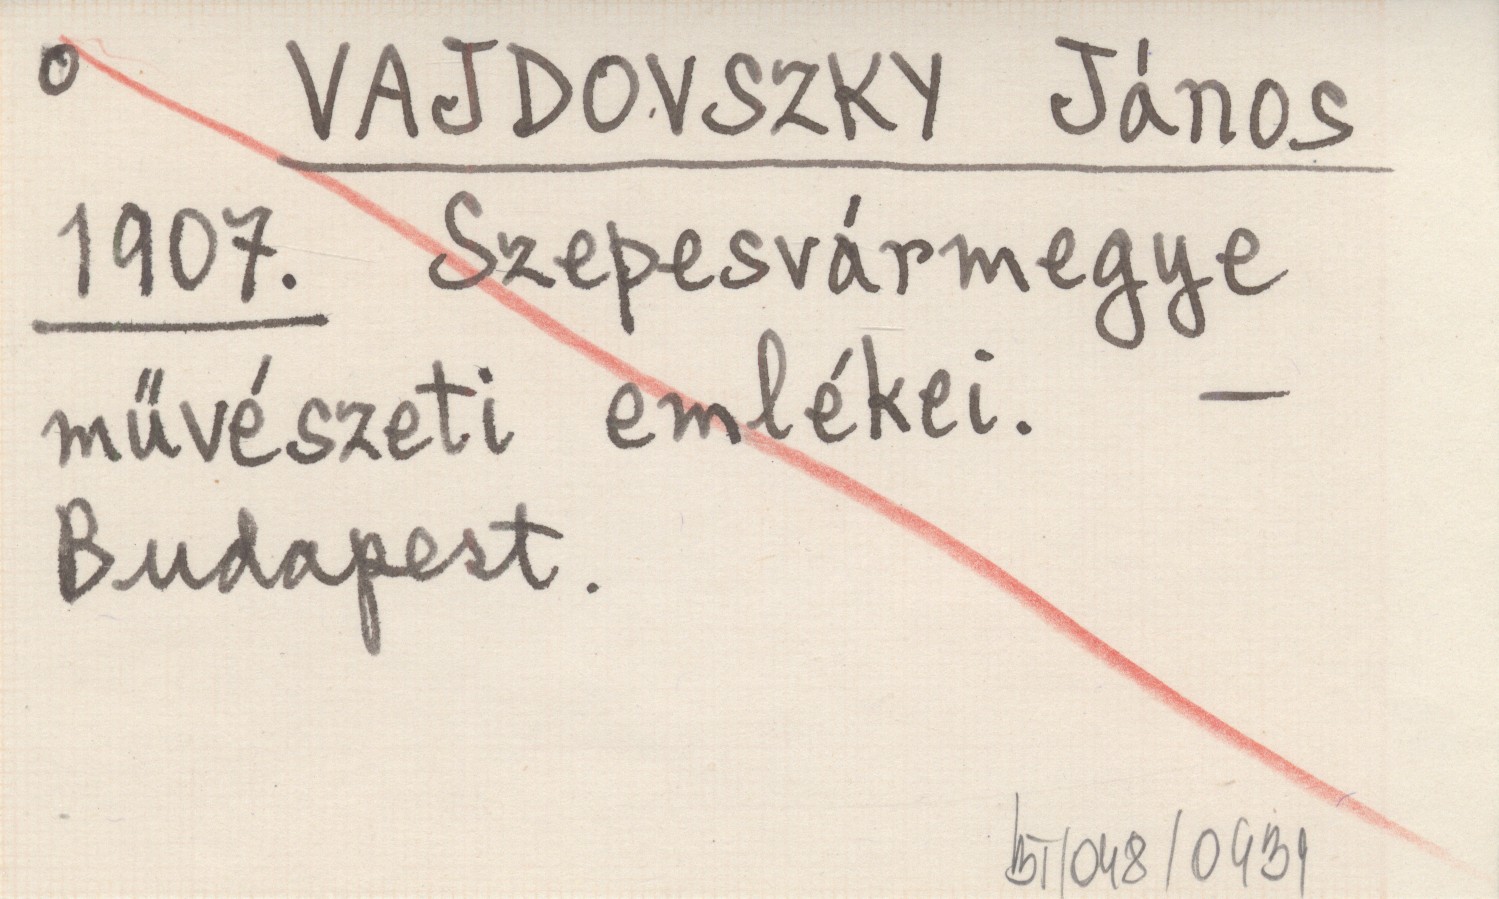 o VAJDOVSZKY János
1907. Szepesvármegye
művészeti emlékei. —
Budapest.
BT/048/0431